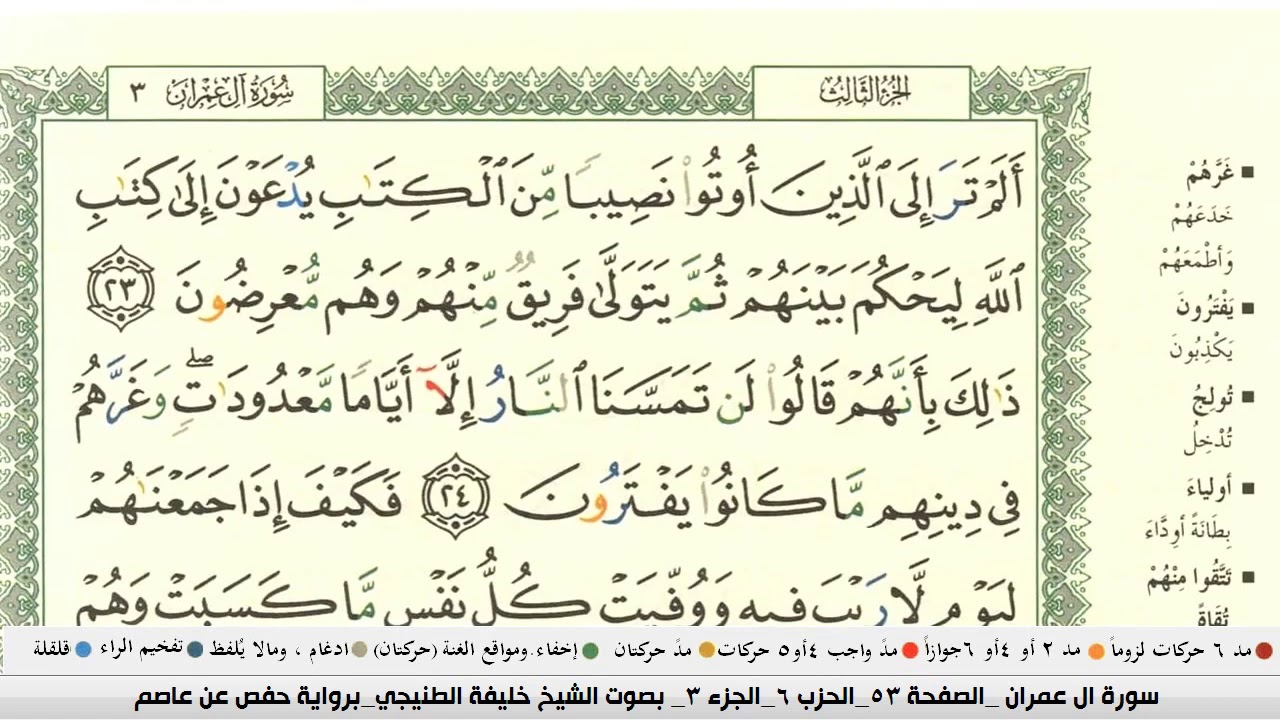 سُورَةُ آلِ عِمْرَانَ ٣
الجُزْءُ الثَّالِثُ
أَلَمْ تَرَ إِلَى ٱلَّذِينَ أُوتُوا۟ نَصِيبًا مِّنَ ٱلْكِتَٰبِ يُدْعَوْنَ إِلَىٰ كِتَٰبِ
ٱللَّهِ لِيَحْكُمَ بَيْنَهُمْ ثُمَّ يَتَوَلَّىٰ فَرِيقٌ مِّنْهُمْ وَهُم مُّعْرِضُونَ ٢٣
ذَٰلِكَ بِأَنَّهُمْ قَالُوا۟ لَن تَمَسَّنَا ٱلنَّارُ إِلَّآ أَيَّامًا مَّعْدُودَٰتٍ ۖ وَغَرَّهُمْ
فِي دِينِهِم مَّا كَانُوا۟ يَفْتَرُونَ ٢٤ فَكَيْفَ إِذَا جَمَعْنَٰهُمْ
لِيَوْمٍ لَّا رَيْبَ فِيهِ وَوُفِّيَتْ كُلُّ نَفْسٍ مَّا كَسَبَتْ وَهُمْ
غَرَّهُمْ
خَدَعَهُمْ
وَأَطْمَعَهُمْ
يَفْتَرُونَ
يَكْذِبُونَ
تُولِجُ
تُدْخِلُ
أَولياءَ
بِطَانَةً أَوِدَّاءَ
تَتَّقُوا مِنْهُمْ
تُقَاةً
مد ٦ حركات لزوماً مد ٢ أو ٤ أو ٦ جوازاً مدّ واجب ٤ أو ٥ حركات مدّ حركتان إخفاء، ومواقع الغنة (حركتان) ادغام ، ومالا يُلفظ تفخيم الراء قلقلة
سورة ال عمران _الصفحة ٥٣_الحزب ٦_الجزء ٣_ بصوت الشيخ خليفة الطنيجي_برواية حفص عن عاصم